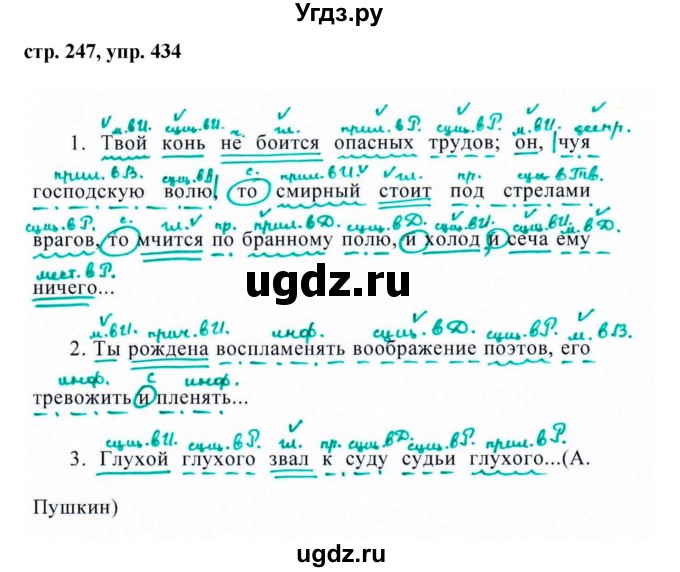 Угдз.ру
стр. 247, упр. 434
м.вИ. сущ.вИ. ч. гл. прил.вР. сущ.вР. м.вИ. деепр.
1. Твой конь не боится опасных трудов; он, чуя
прил.вВ. сущ.вВ. с. прил.вИ. гл. пр. сущ.вТв.
господскую волю, то смирный стоит под стрелами
сущ.вР. с. гл. пр. прил.вД. сущ.вД. сущ.вИ. сущ.вИ. м.вД.
врагов, то мчится по бранному полю, и холод и сеча ему
мест.вР.
ничего...
ugdz.ru
м.вИ. прич.вИ. инф. сущ.вД. сущ.вР. м.вВ.
2. Ты рождена воспламенять воображение поэтов, его
инф. с инф.
тревожить и пленять...
сущ.вИ. сущ.вР. гл. пр. сущ.вД. сущ.вР. прил.вР.
3. Глухой глухого звал к суду судьи глухого...(А.
Пушкин)
ugdz.ru